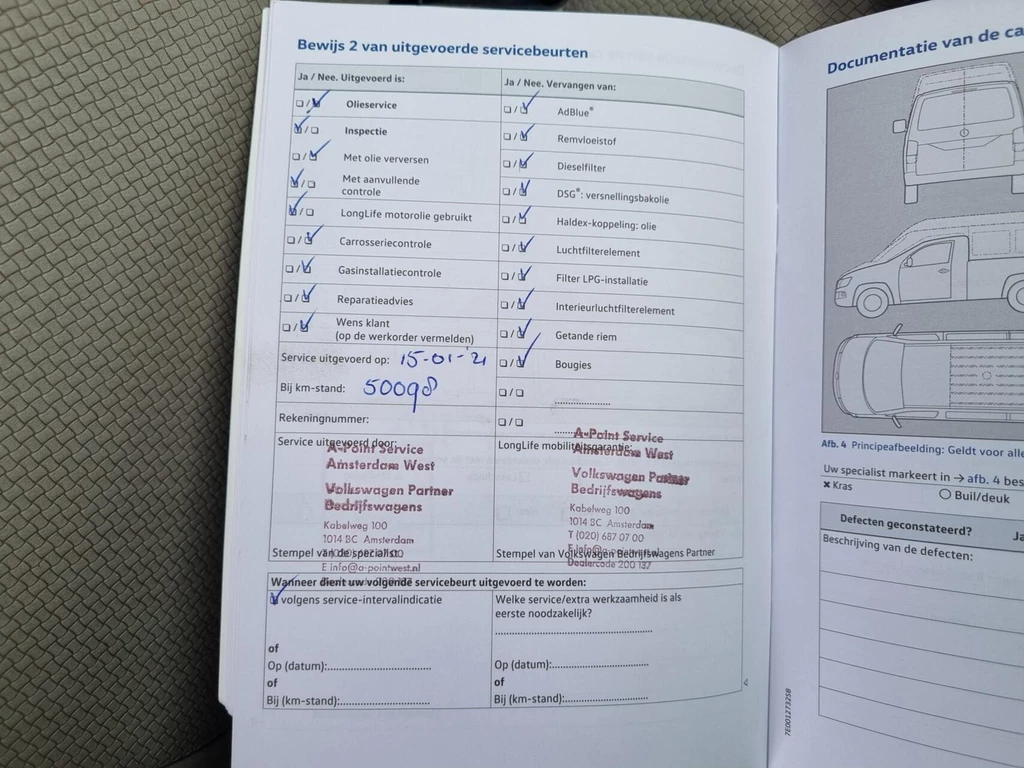 Bewijs 2 van uitgevoerde servicebeurten
Ja / Nee. Uitgevoerd is:
Olieservice
Inspectie
Met olie verversen
Met aanvullende
controle
LongLife motorolie gebruikt
Carrosseriecontrole
Gasinstallatiecontrole
Reparatieadvies
Wens klant
(op de werkorder vermelden)
Service uitgevoerd op: 15-01-'21
Bij km-stand: 50098
Rekeningnummer:
Service uitgevoerd door:
A-Point Service
Amsterdam West
Volkswagen Partner
Bedrijfswagens
Kabelweg 100
1014 BC Amsterdam
Stempel van de specialist
E info@a-pointwest.nl
Ja / Nee. Vervangen van:
AdBlue®
Remvloeistof
Dieselfilter
DSG®: versnellingsbakolie
Haldex-koppeling: olie
Luchtfilterelement
Filter LPG-installatie
Interieurluchtfilterelement
Getande riem
Bougies
....................
LongLife mobiliteitsgarantie:
A-Point Service
Amsterdam West
Volkswagen Partner
Bedrijfswagens
Kabelweg 100
1014 BC Amsterdam
T (020) 687 07 00
Stempel van Volkswagen Bedrijfswagens Partner
Dealercode 200 137
Wanneer dient uw volgende servicebeurt uitgevoerd te worden:
volgens service-intervalindicatie
of
Op (datum):..............................
of
Bij (km-stand):..........................
Welke service/extra werkzaamheid is als
eerste noodzakelijk?
.............................................
Op (datum):............................
of
Bij (km-stand):........................
7E0012732SB
Documentatie van de ca
Afb. 4 Principeafbeelding: Geldt voor alle
Uw specialist markeert in → afb. 4 bes
× Kras
○ Buil/deuk
Defecten geconstateerd? Ja
Beschrijving van de defecten: